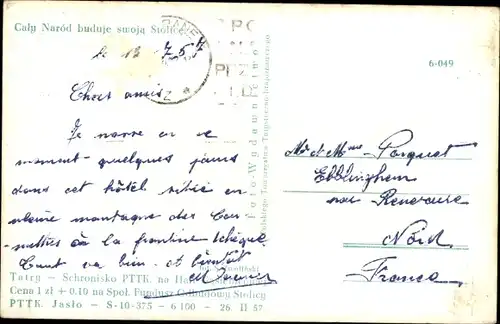 Cały Naród buduje swoją Stolicę
le 18 7 57
6-049
Chers amis
Je passe en ce
moment quelques jours
dans cet hôtel situé en
pleine montagne des Car
à la frontière tchèque
Tout va bien et bientôt
Mr et Mme Porquet
Ebblinghem
par Renescure
Nord
France
Tatry - Schronisko PTTK. na Hali
Cena 1 zł + 0.10 na Społ. Fundusz Odbudowy Stolicy
PTTK. Jasło - S-10-375 - 6 100 - 26. II 57